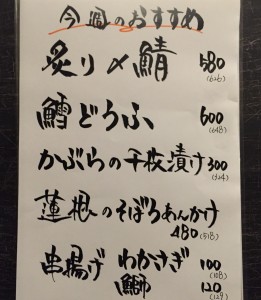 今週のおすすめ
炙り〆鯖 580
(626)
鱈どうふ 600
(648)
かぶらの千枚漬け 300
(324)
蓮根のそぼろあんかけ
480 (518)
串揚げ わかさぎ 100
(108)
鰤 120
(129)